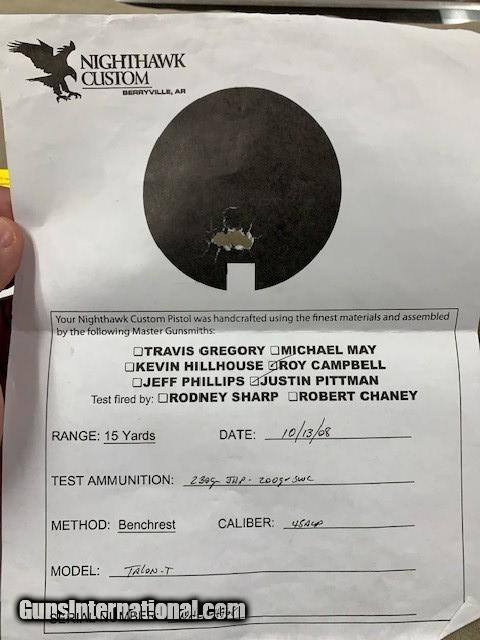 NIGHTHAWK
CUSTOM
BERRYVILLE, AR
Your Nighthawk Custom Pistol was handcrafted using the finest materials and assembled
by the following Master Gunsmiths:
☐TRAVIS GREGORY ☐MICHAEL MAY
☐KEVIN HILLHOUSE ☑ROY CAMPBELL
☐JEFF PHILLIPS ☑JUSTIN PITTMAN
Test fired by: ☐RODNEY SHARP ☐ROBERT CHANEY
RANGE: 15 Yards DATE: 10/13/08
TEST AMMUNITION: 230gr JHP - 200gr SWC
METHOD: Benchrest CALIBER: 45ACP
MODEL: TALON-T
SERIAL NUMBER:
GunsInternational.com